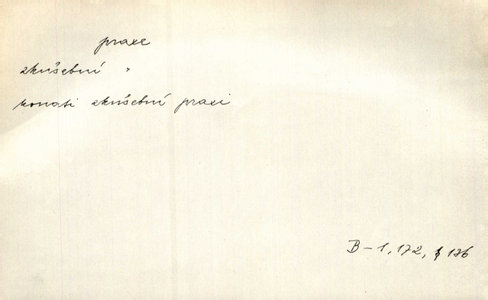 praxe
zkušební "
konati zkušební praxi
B-1, 172, § 136